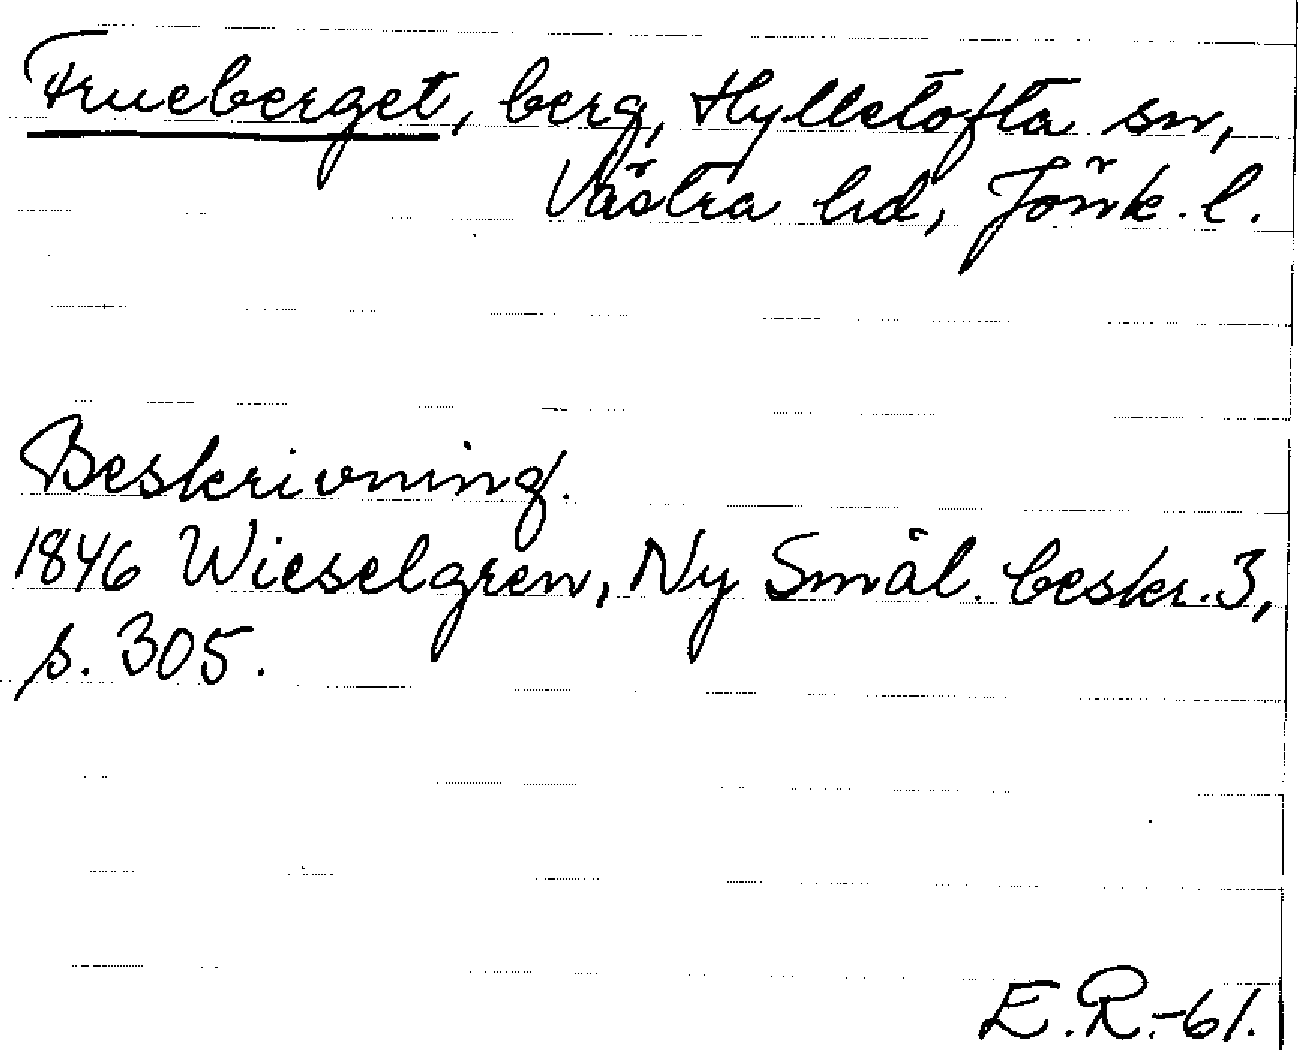 Frueberget, berg, Hylletofta sn,
Västra hd, Jönk. l.
Beskrivning.
1846 Wieselgren, Ny Smål. beskr. 3,
s. 305.
E.R.-61.